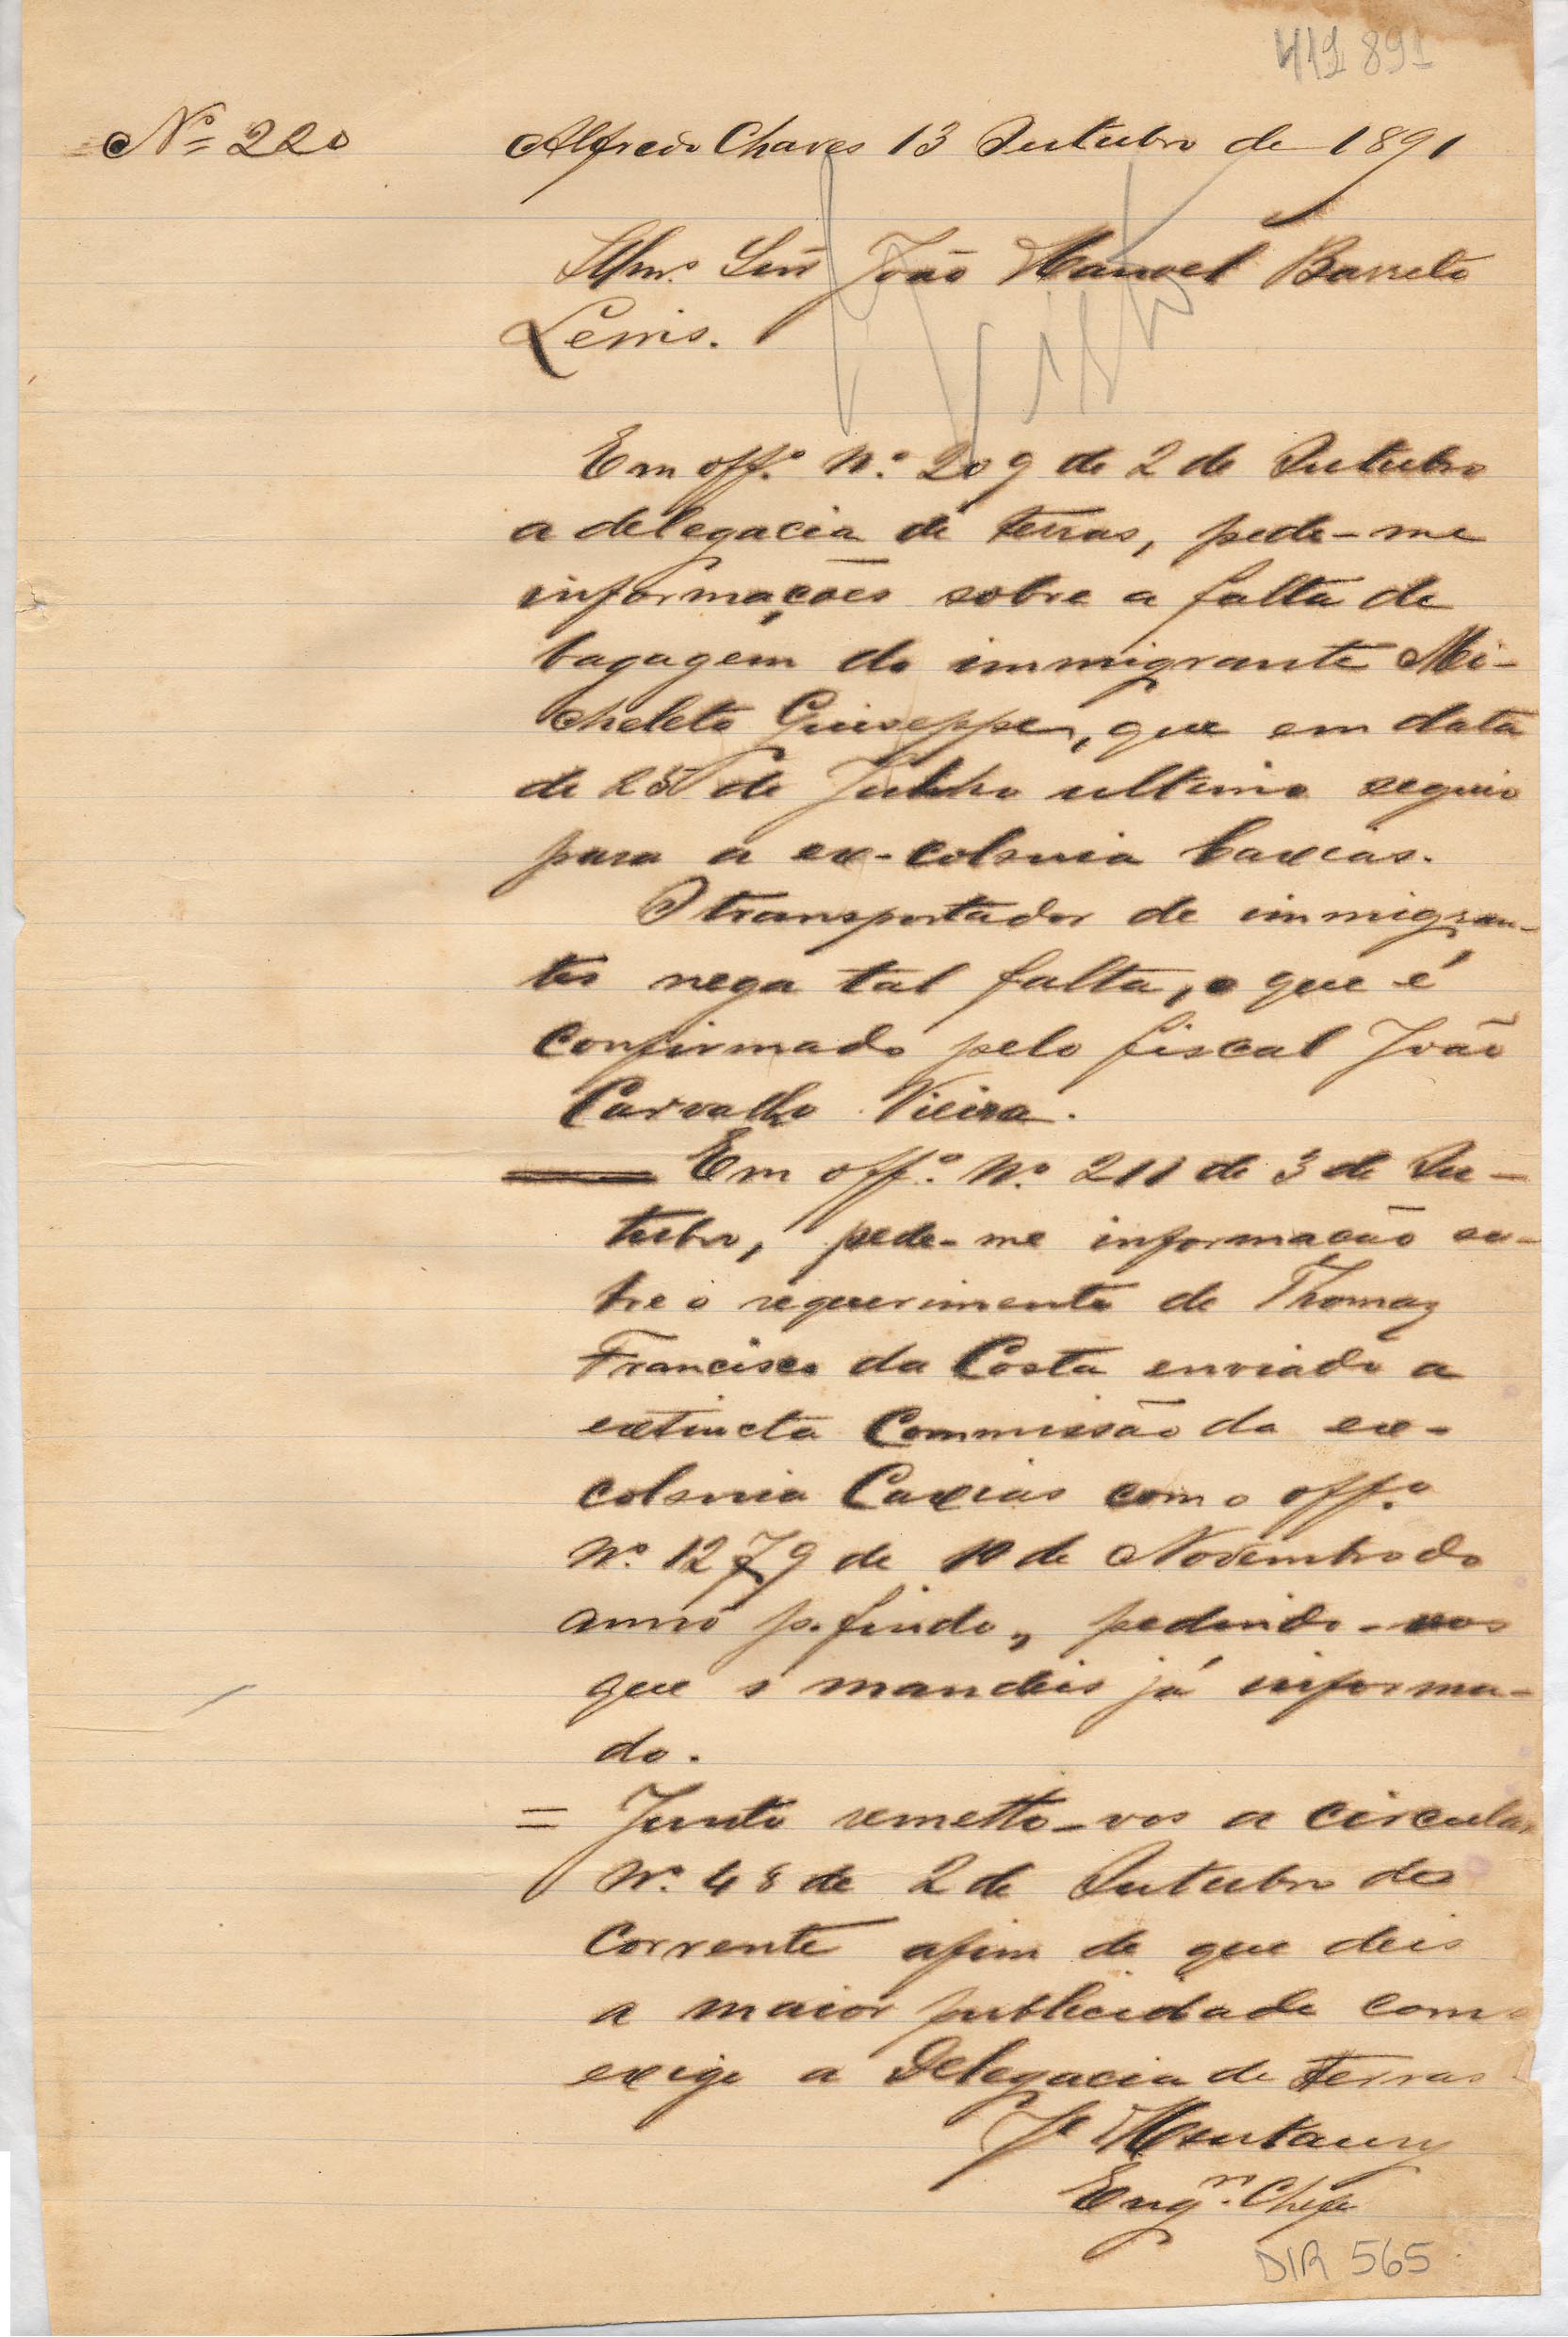 419 891
Nº 220
Alfredo Chaves 13 Outubro de 1891
Illmº Snr João Manoel Barreto
Lemis.
Visto
Em offº Nº 209 de 2 de Outubro
a delegacia de terras, pede-me
informações sobre a falta de
bagagem do immigrante Mi-
cheleto Giuseppe, que em data
de 25 de Julho ultimo seguio
para a ex-colonia Caxias.
O transportador de immigran-
tes nega tal falta, o que é
confirmado pelo fiscal João
Carvalho Vieira.
Em offº Nº 211 de 3 de Ou-
tubro, pede-me informação so-
bre o requerimento de Thomaz
Francisco da Costa enviado a
extincta Commissão da ex-
colonia Caxias com o offº
Nº 1279 de 10 de Novembro do
anno p. findo, pedindo-vos
que o mandeis já informa-
do.
= Junto remetto-vos a circular
Nº 48 de 2 de Outubro do
corrente afim de que deis
a maior publicidade como
exige a Delegacia de terras
Je Montaury
Engrº Chefe
DIR 565